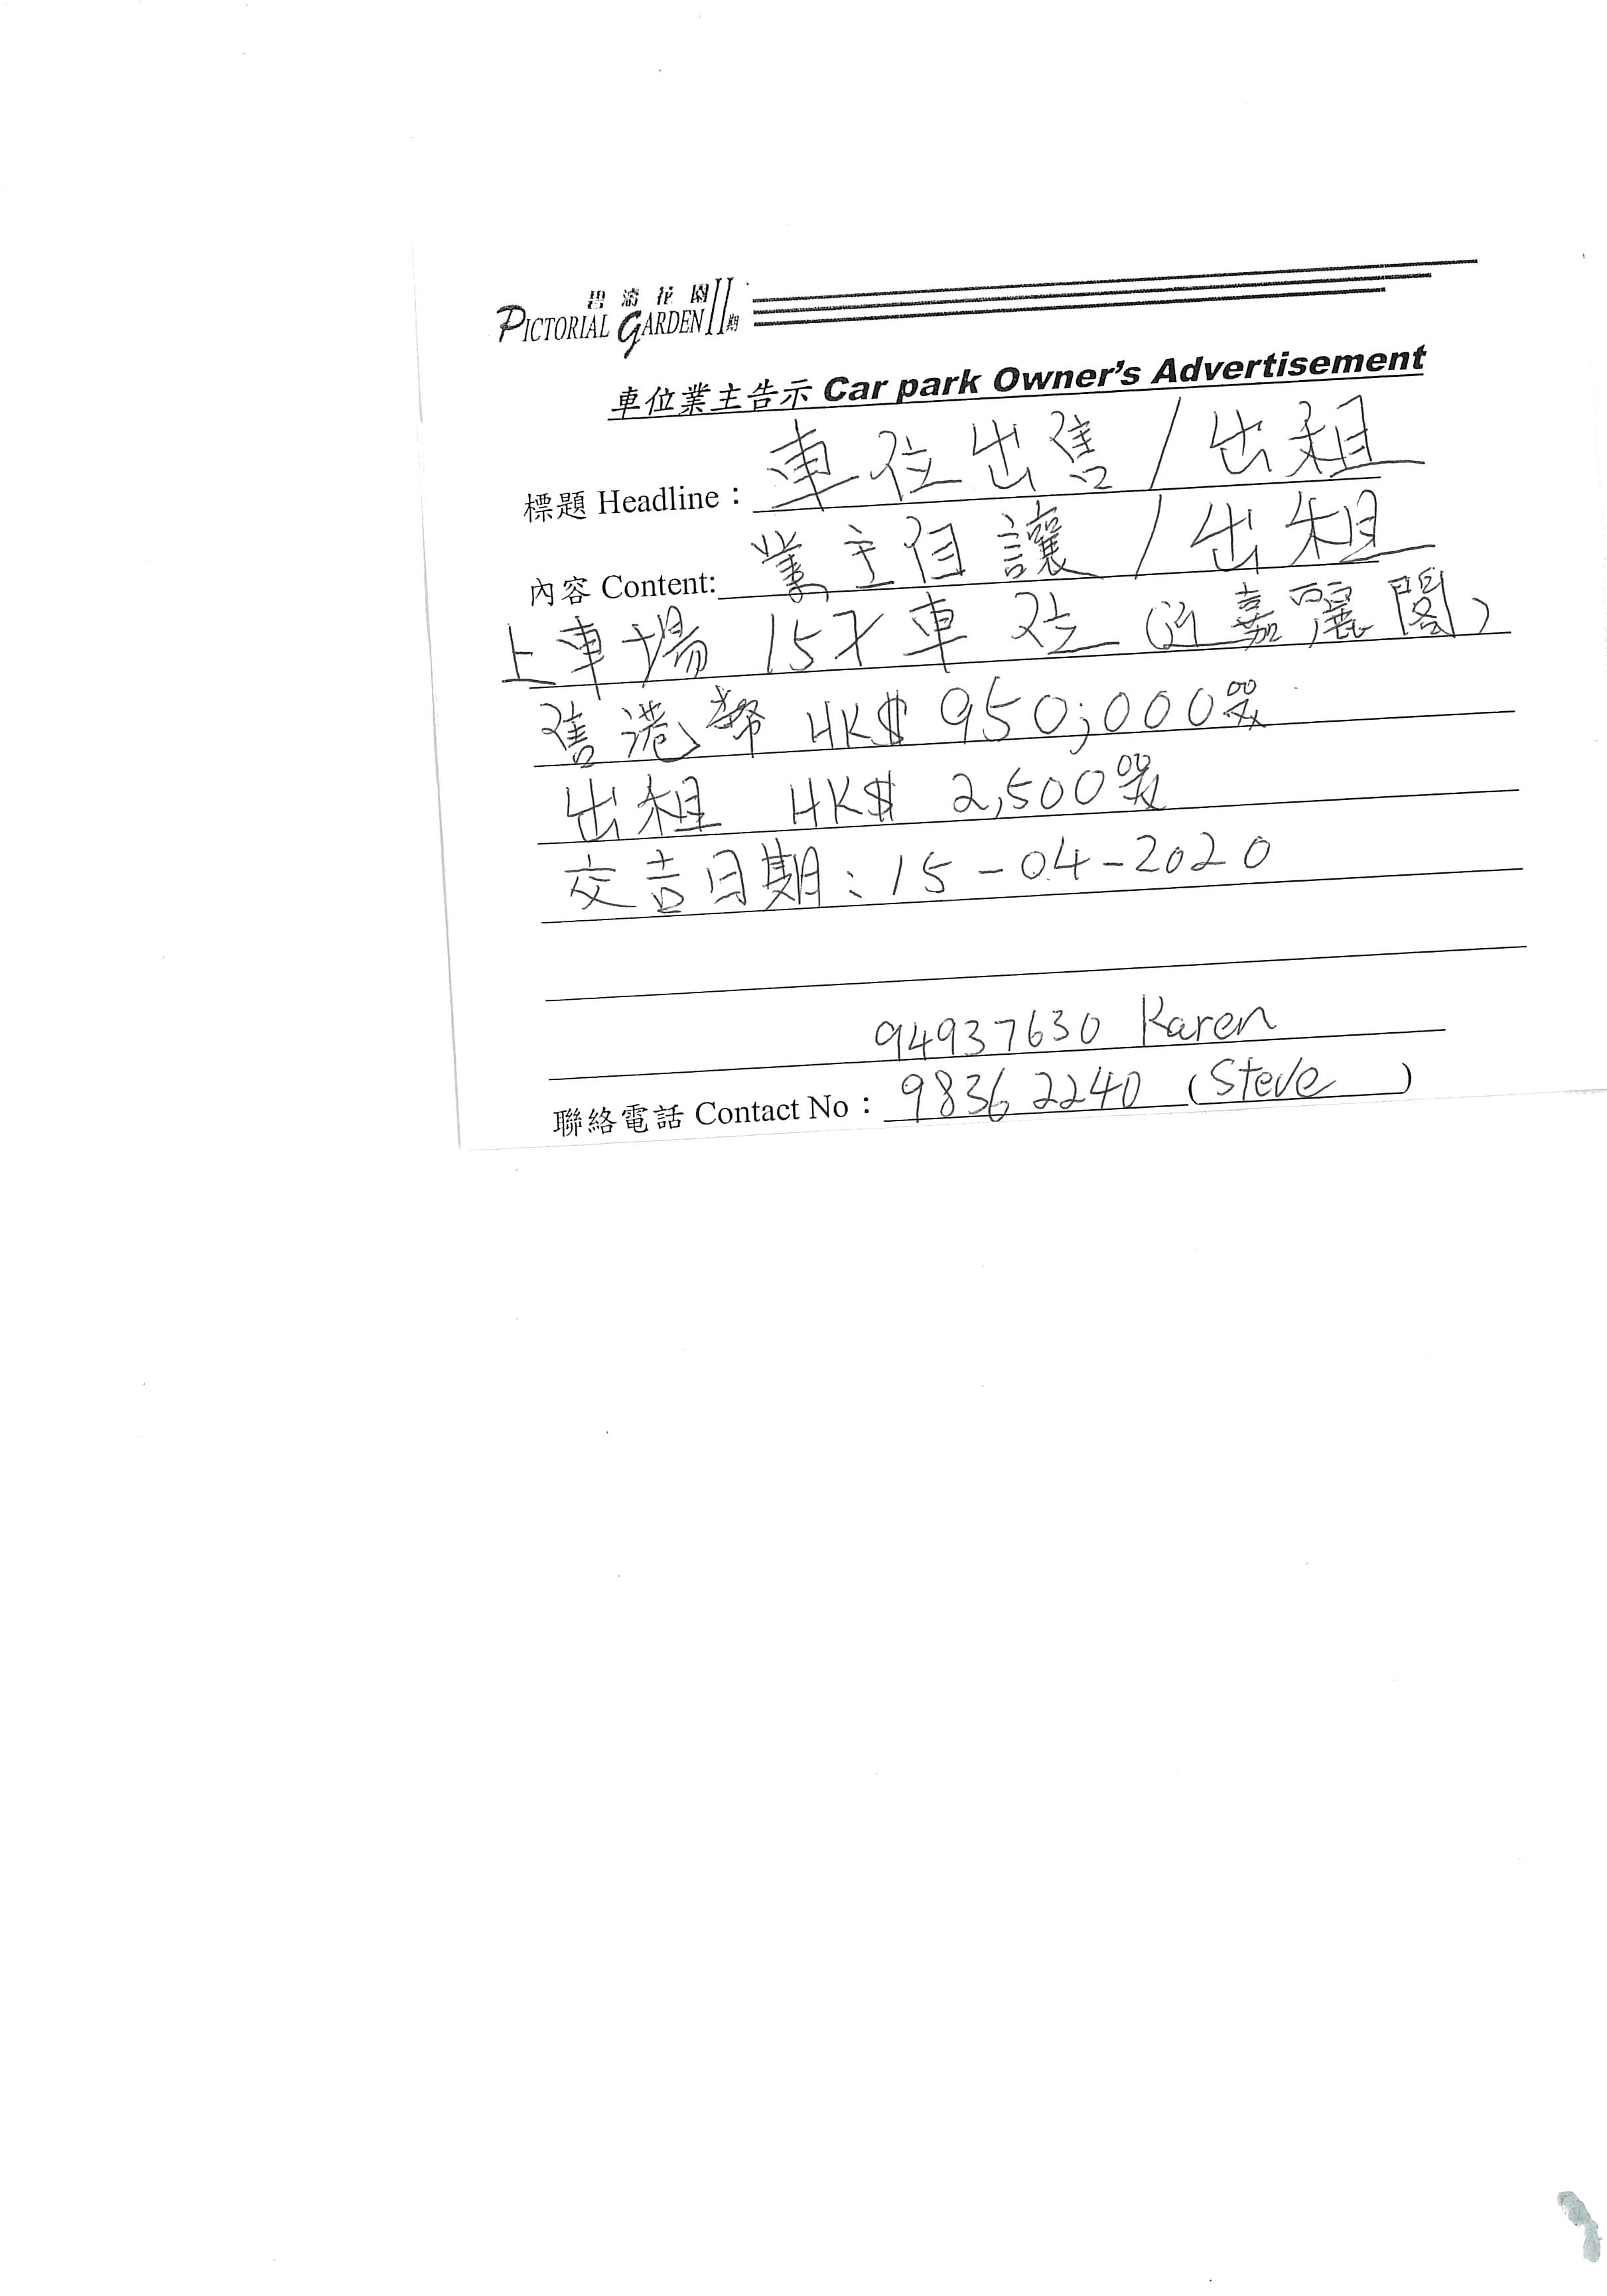 碧濤花園II期
PICTORIAL GARDEN
車位業主告示 Car park Owner's Advertisement
標題 Headline： 車位出售/出租
內容 Content: 業主自讓/出租
上車場 15才車位(近嘉麗閣)
售港幣 HK$ 950,000
出租 HK$ 2,500
交吉日期：15-04-2020
94937630 Karen
聯絡電話 Contact No： 98362240 (Steve)